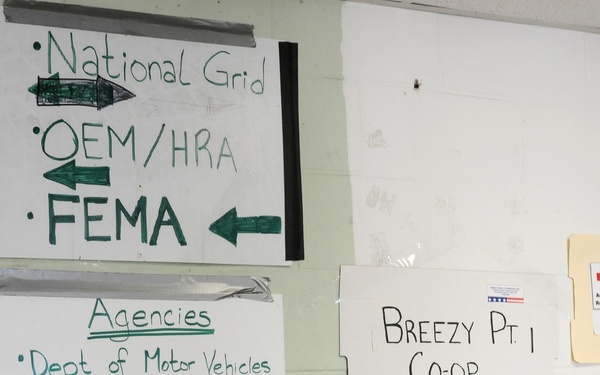 • National Grid
• OEM/HRA
• FEMA
Agencies
• Dept of Motor Vehicles
BREEZY PT.
CO-OP